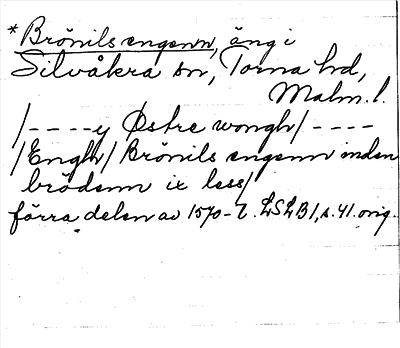 *Brönils engenn, äng i
Silvåkra sn, Torna hd,
Malm. l.
/----y Østre wongh/----
/Engh/ Brönils engenn inden
brödenn ix less/
förra delen av 1570-t. LSLB 1, s. 41. orig.